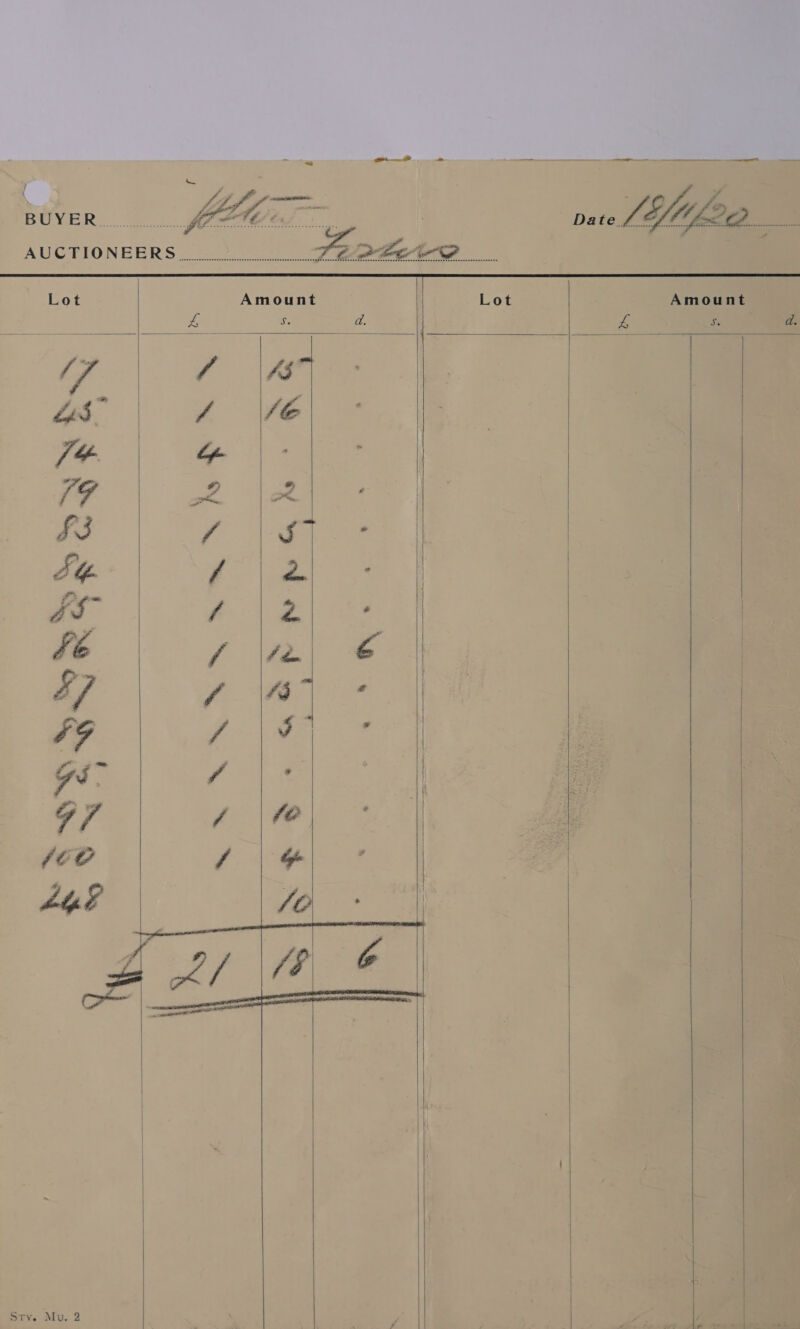 BUYER Date 18/11/20
AUCTIONEERS
Lot Amount Lot Amount
£ s. d. £ s. d.
17 1 15 -
45 1 16 -
74 4 - -
79 2 2 -
83 1 5 -
84 1 2 -
85 1 2 -
86 1 12 6
87 1 15 -
89 1 5 -
95 1 -
97 1 10 -
100 1 4 -
248 10 -
£ 21 18 6
Sty. Mu. 2